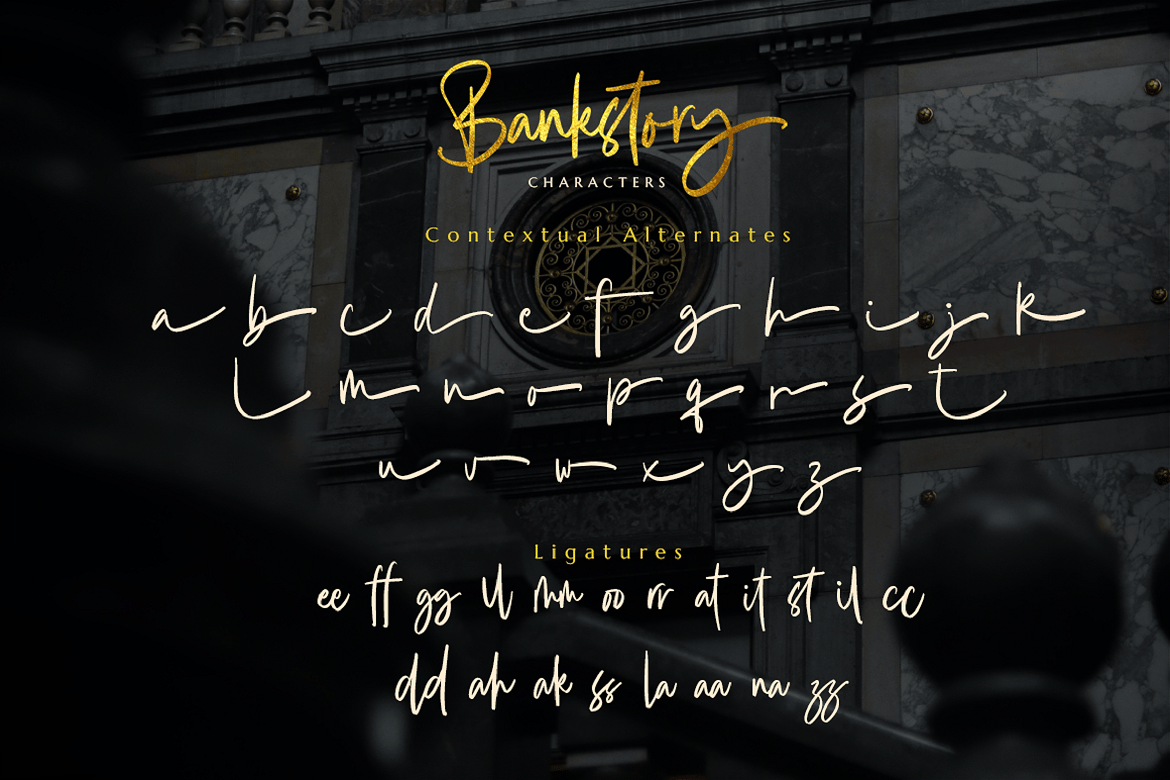 Bankstory
CHARACTERS
Contextual Alternates
a b c d e f g h i j k
l m n o p q r s t
u v w x y z
Ligatures
ee ff gg ll mm oo rr at it st il cc
dd ah ak ss la aa na zz